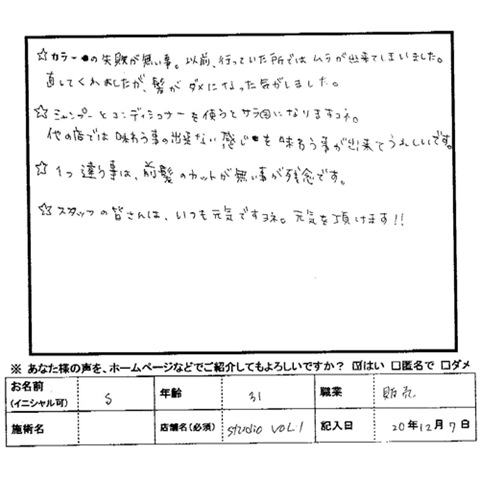 ☆カラーの失敗が無い事。以前、行っていた所ではムラが出来てしまいました。
直してくれましたが、髪がダメになった気がしました。
☆シャンプーとコンディショナーを使うとサラ回になりますヨネ。
他の店では味わう事の出来ない感じを味わう事が出来てうれしいです。
☆1つ違う事は、前髪のカットが無い事が残念です。
☆スタッフの皆さんは、いつも元気ですヨネ。元気を頂けます!!
※ あなた様の声を、ホームページなどでご紹介してもよろしいですか? ☑はい □匿名で □ダメ
お名前 (イニシャル可) S 年齢 31 職業 販売
施術名 店舗名(必須) studio VOL.1 記入日 20年12月7日